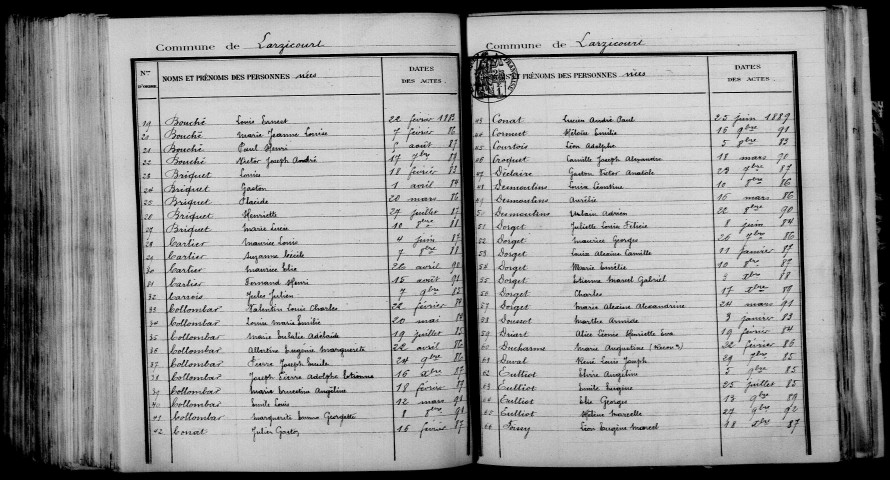 Commune de Larzicourt
Nos D'ORDRE. NOMS ET PRÉNOMS DES PERSONNES nées DATES DES ACTES.
19 Bouché Louis Ernest 22 février 1883
20 Bouché Marie Jeanne Louise 7 février 86
21 Bouché Paul Henri 5 août 87
22 Bouché Victor Joseph André 17 7bre
23 Briquet Louis 18 février 83
24 Briquet Gaston 1 avril 84
25 Briquet Placide 20 mars 86
26 Briquet Henriette 27 juillet 87
27 Briquet Marie Lucie 10 8bre 88
28 Cartier Maurice Louis 4 juin 87
29 Cartier Suzanne Cécile 7 8bre 88
30 Cartier Maurice Elie 22 avril 90
31 Cartier Fernand Henri 15 août 91
32 Carrois Jules Julien 7 9bre
33 Collombar Valentin Louis Charles 22 février 84
34 Collombar Louise Marie Emilie 20 mai 84
35 Collombar Marie Eulalie Adélaïde 19 juillet 85
36 Collombar Albertine Eugénie Marguerite 22 avril 86
37 Collombar Pierre Joseph Emile 24 9bre 86
38 Collombar Joseph Pierre Adolphe Etienne 16 Xbre 87
39 Collombar Marie Ernestine Angéline 18 février 87
40 Collombar Emile Louis 12 mars 90
41 Collombar Marguerite Emma Georgette 8 8bre 91
42 Conat Julien Gaston 16 février 87
Commune de Larzicourt
NOMS ET PRÉNOMS DES PERSONNES nées DATES DES ACTES.
43 Conat Lucien André Paul 25 juin 1889
44 Connect Héloïse Emilie 16 9bre 91
45 Courtois Léon Adolphe 5 8bre 83
46 Croquet Camille Joseph Alexandre 18 mars 90
47 Déclaire Gaston Victor Anatole 23 9bre 87
48 Desmoulins Louise Léontine 10 8bre 86
49 Desmoulins Aurélie 16 mars 86
50 Desmoulins Urbain Adrien 22 8bre 90
51 Dorget Juliette Louise Félicie 8 juin 84
52 Dorget Maurice Georges 26 7bre 86
53 Dorget Alexine Camille 11 janvier 87
54 Dorget Marie Emélie 10 8bre 87
55 Dorget Etienne Marcel Gabriel 3 Xbre 88
56 Dorget Charles 17 Xbre 89
57 Dorget Marie Alexine Alexandrine 24 mars 91
58 Doussot Marthe Armide 3 janvier 83
59 Driart Alice Léonie Henriette Eva 19 février 84
60 Ducharme Marie Augustine 22 février 86
61 Duval René Louis Joseph 29 7bre 85
62 Eulliot Elvire Angéline 5 9bre 85
63 Eulliot Emile Eugène 25 juillet 85
64 Eulliot Elie Georges 13 9bre 89
65 Eulliot Hélène Marcelle 27 9bre 92
66 Léon Eugène Marcel 18 Xbre 87